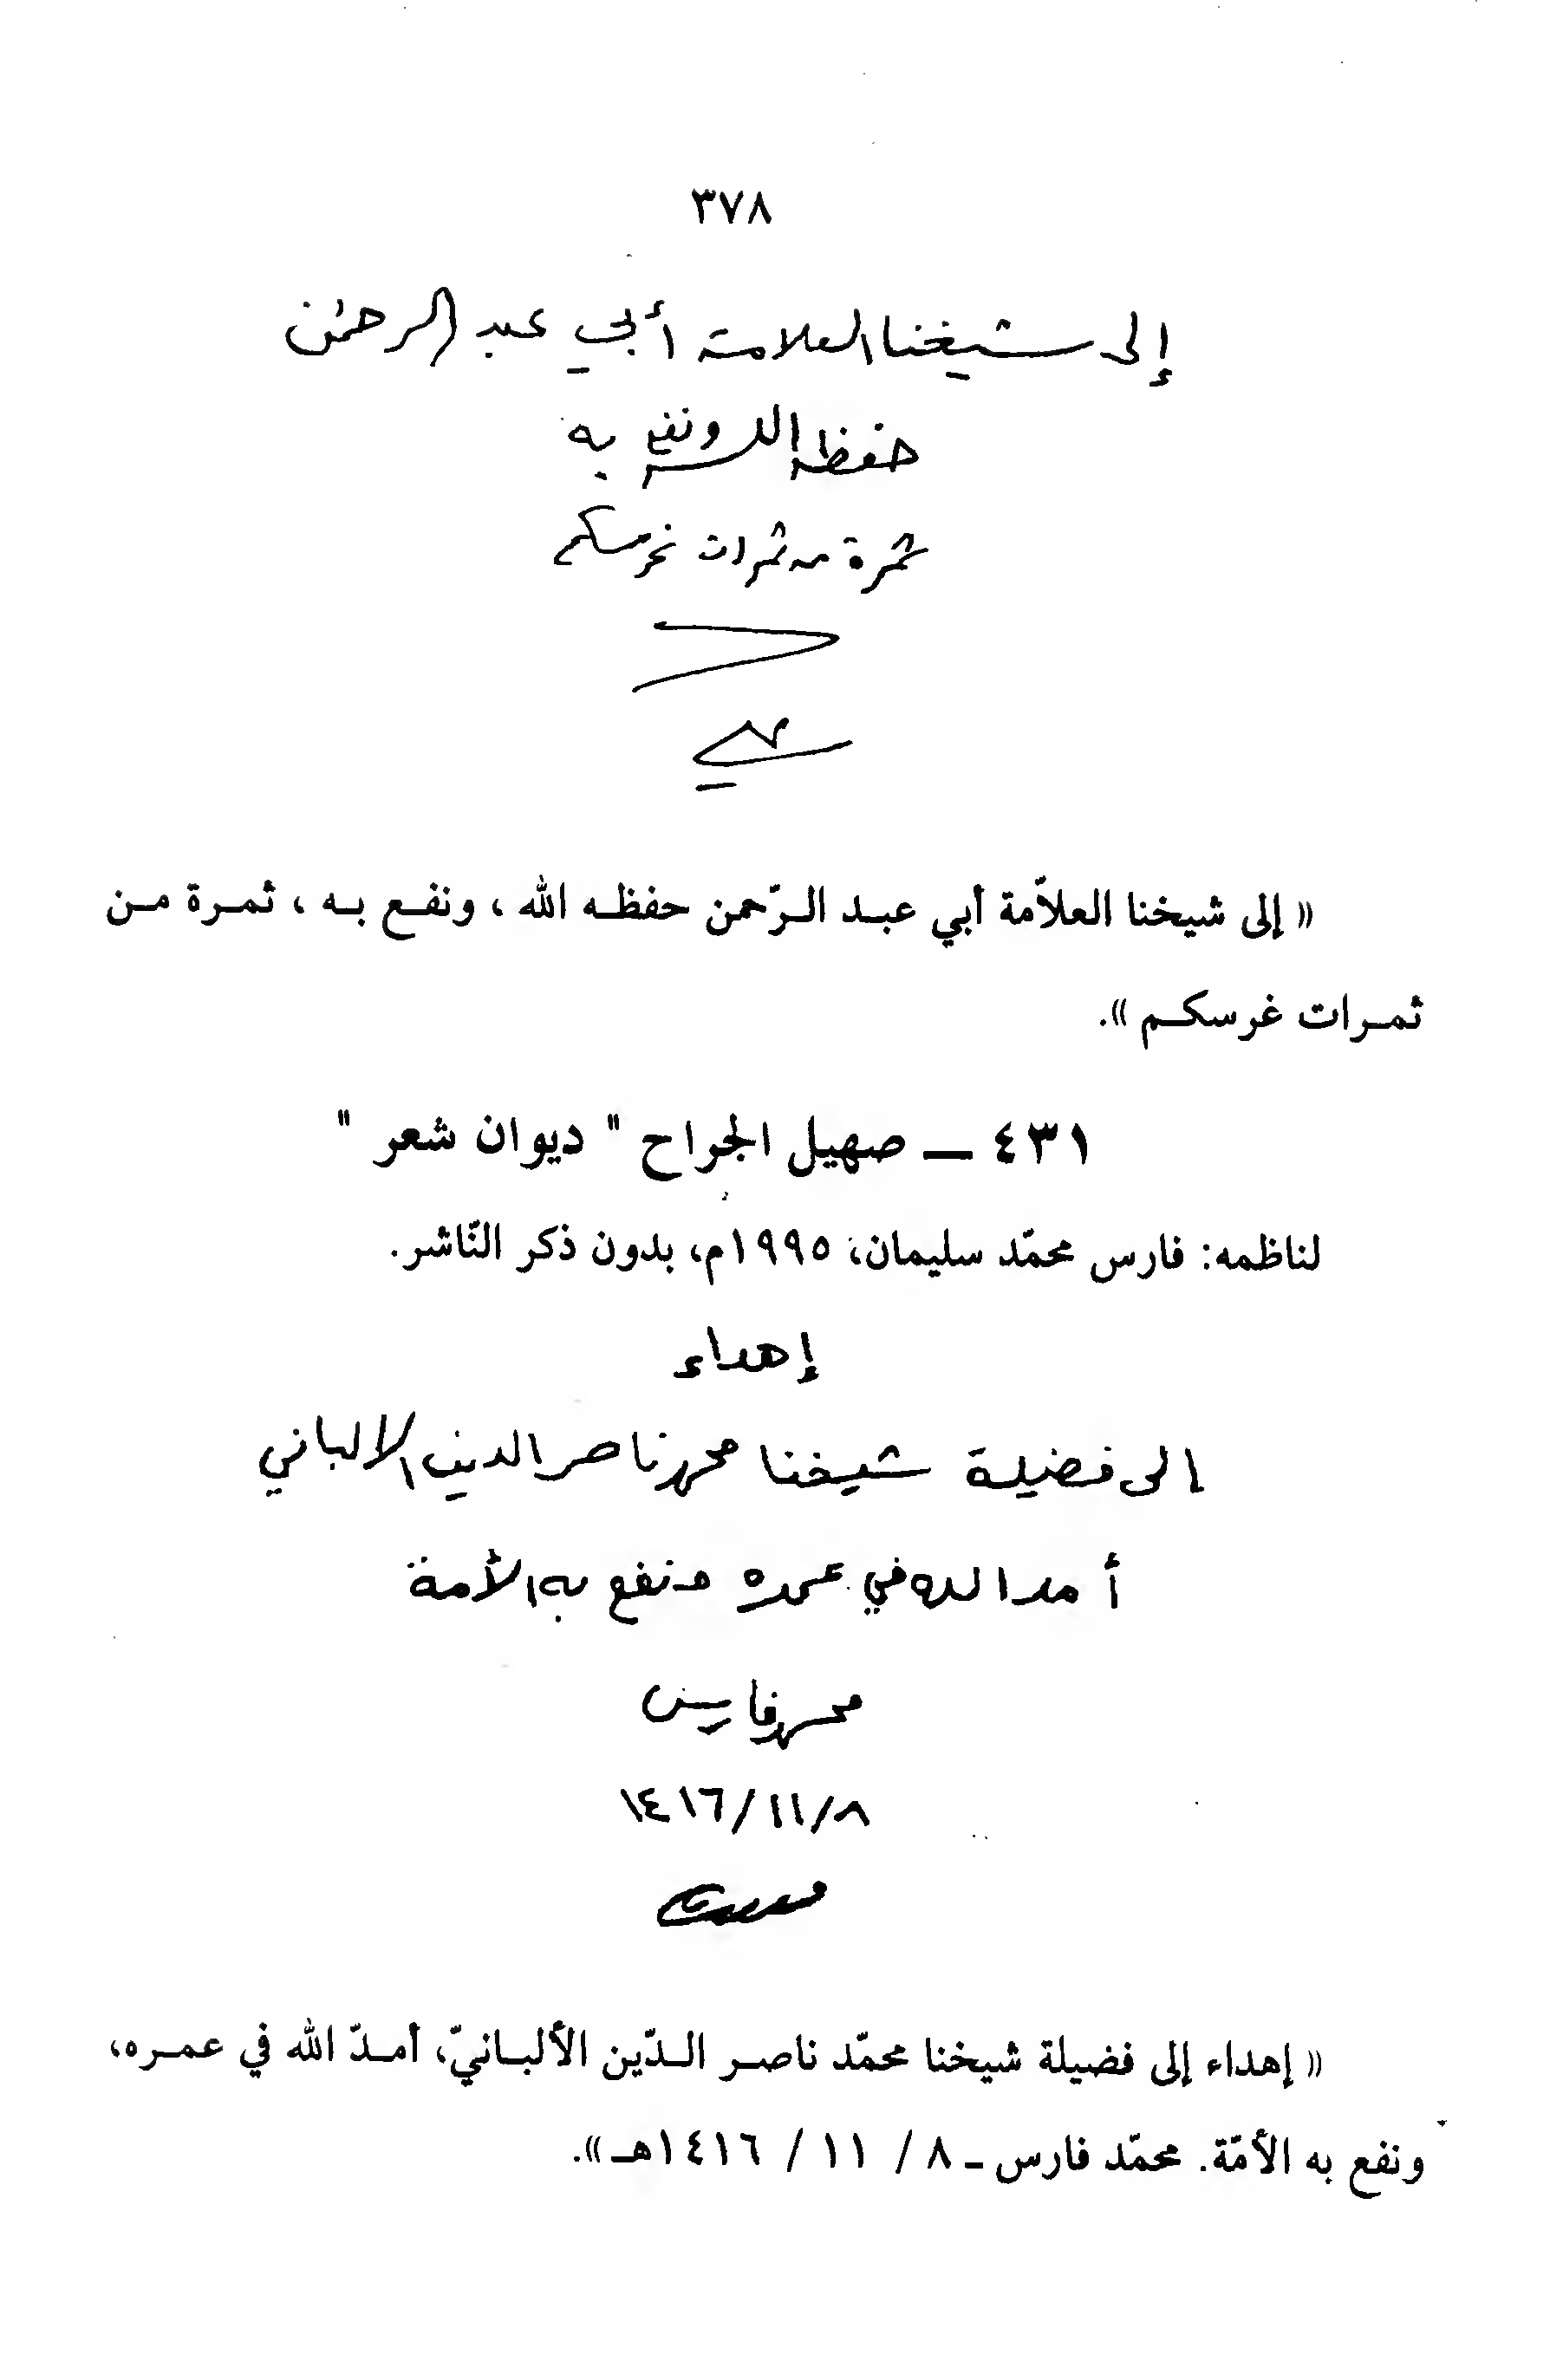 ٣٧٨
إلى شيخنا العلامة أبي عبد الرحمن
حفظه الله ونفع به
ثمرة من ثمرات غرسكم
علي
« إلى شيخنا العلاّمة أبي عبد الرّحمن حفظه الله ، ونفع به ، ثمرة من
ثمرات غرسكم ».
٤٣١ ــ صهيل الجراح " ديوان شعر "
لناظمه: فارس محمّد سليمان، ١٩٩٥م، بدون ذكر النّاشر.
إهداء
إلى فضيلة شيخنا محمد ناصر الدين الالباني
أمد الله في عمره ونفع به الأمة
محمد فارس
١٤١٦/١١/٨
« إهداء إلى فضيلة شيخنا محمّد ناصر الدّين الألبانيّ، أمدّ الله في عمره،
ونفع به الأمّة. محمّد فارس ـ ٨ / ١١ / ١٤١٦هـ ».